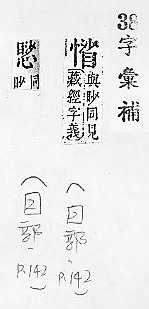 38 字彙補
與眇同見
藏經字義
(目部, P.142)
同
眇
(目部, P.142)